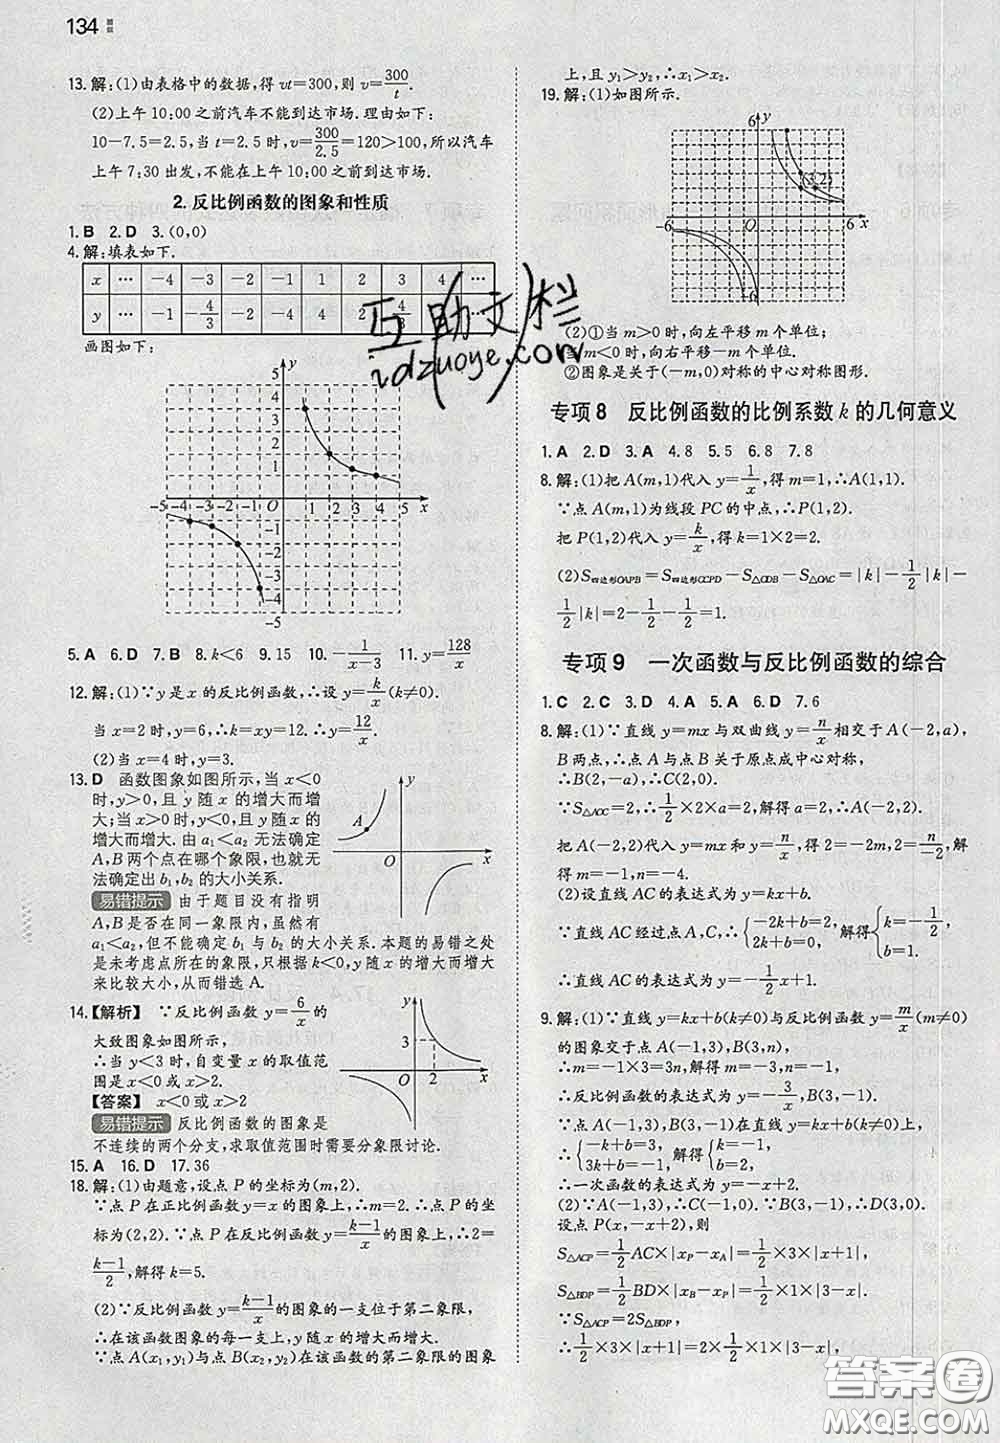 134
13.解:(1)由表格中的数据,得 vt=300,则 v=300/t.
(2)上午 10:00 之前汽车不能到达市场.理由如下:
10-7.5=2.5,当 t=2.5 时,v=300/2.5=120>100,所以汽车
上午 7:30 出发,不能在上午 10:00 之前到达市场.
2.反比例函数的图象和性质
1.B 2.D 3.(0,0)
4.解:填表如下.
x … -4 -3 -2 -1 1 2 3 4 …
y … -1 -4/3 -2 -4 4 2 4/3 1 …
画图如下:
5.A 6.D 7.B 8.k<6 9.15 10.-1/(x-3) 11.y=128/x
12.解:(1)∵y是 x 的反比例函数,∴设 y=k/x(k≠0).
当 x=2 时,y=6,∴k=xy=12.∴y=12/x.
(2)当 x=4 时,y=3.
13.D 函数图象如图所示,当 x<0
时,y>0,且 y 随 x 的增大而增
大;当 x>0 时,y<0,且 y 随 x 的
增大而增大.由 a₁<a₂ 无法确定
A,B 两个点在哪个象限,也就无
法确定出 b₁,b₂ 的大小关系.
易错提示 由于题目没有指明
A,B 是否在同一象限内,虽然有
a₁<a₂,但不能确定 b₁ 与 b₂ 的大小关系.本题的易错之处
是未考虑点所在的象限,只根据 k<0,y 随 x 的增大而增大
来比较大小,从而错选 A.
14.【解析】 ∵反比例函数 y=6/x的
大致图象如图所示,
∴当 y<3 时,自变量 x 的取值范
围是 x<0 或 x>2.
【答案】 x<0 或 x>2
易错提示 反比例函数的图象是
不连续的两个分支,求取值范围时需要分象限讨论.
15.A 16.D 17.36
18.解:(1)由题意,设点 P 的坐标为(m,2).
∵点 P 在正比例函数 y=x 的图象上,∴m=2.∴点 P 的坐
标为(2,2).∵点 P 在反比例函数 y=(k-1)/x的图象上,∴2=
(k-1)/2,解得 k=5.
(2)∵反比例函数 y=(k-1)/x的图象的一支位于第二象限,
∴在该函数图象的每一支上,y 随 x 的增大而增大.
∵点 A(x₁,y₁)与点 B(x₂,y₂)在该函数的第二象限的图象
上,且 y₁>y₂,∴x₁>x₂.
19.解:(1)如图所示.
(2)①当 m>0 时,向左平移 m 个单位;
当 m<0 时,向右平移-m 个单位.
②图象是关于(-m,0)对称的中心对称图形.
专项 8 反比例函数的比例系数 k 的几何意义
1.A 2.D 3.A 4.8 5.5 6.8 7.8
8.解:(1)把 A(m,1)代入 y=1/x,得 m=1,∴A(1,1).
∵点 A(m,1)为线段 PC 的中点,∴P(1,2).
把 P(1,2)代入 y=k/x,得 k=1×2=2.
(2)S四边形OAPB=S四边形OCPD-S△ODB-S△OAC=|k|-1/2|k|-
1/2|k|=2-1/2-1/2=1.
专项 9 一次函数与反比例函数的综合
1.C 2.C 3.D 4.A 5.A 6.D 7.6
8.解:(1)∵直线 y=mx 与双曲线 y=n/x相交于 A(-2,a),
B 两点,∴点 A 与点 B 关于原点成中心对称,
∴B(2,-a),∴C(2,0).
∵S△AOC=2,∴1/2×2×a=2,解得 a=2,∴A(-2,2).
把 A(-2,2)代入 y=mx 和 y=n/x,得 2=-2m,2=n/-2,解得
m=-1,n=-4.
(2)设直线 AC 的表达式为 y=kx+b.
∵直线 AC 经过点 A,C,∴{-2k+b=2, 2k+b=0,解得{k=-1/2, b=1.
∴直线 AC 的表达式为 y=-1/2x+1.
9.解:(1)∵直线 y=kx+b(k≠0)与反比例函数 y=m/x(m≠0)
的图象交于点 A(-1,3),B(3,n),
∴m=-1×3=3n,∴m=-3,n=-1,
∴反比例函数的表达式为 y=-3/x,B(3,-1).
∵点 A(-1,3),B(3,-1)在直线 y=kx+b 上,
∴{-k+b=3, 3k+b=-1,解得{k=-1, b=2,
∴一次函数的表达式为 y=-x+2.
(2)∵A(-1,3),∴C(-1,0).∵B(3,-1),∴D(3,0).
设点 P(x,-x+2),则
S△ACP=1/2AC×|xP-xA|=1/2×3×|x+1|,
S△BDP=1/2BD×|xB-xP|=1/2×1×|3-x|,
∵S△ACP=2S△BDP,
∴1/2×3×|x+1|=2×1/2×1×|3-x|,
互助文栏
idzuoye.con
答案圈
MXQE.COM